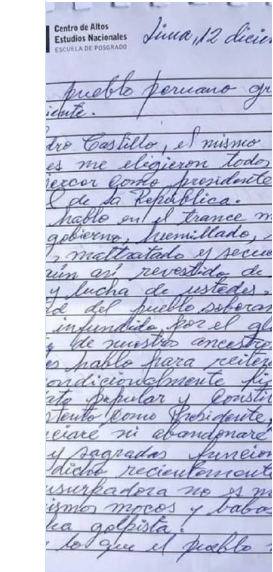 Centro de Altos
Estudios Nacionales
ESCUELA DE POSGRADO
Lima, 12 dicie
pueblo peruano gr
iente.
dro Castillo, el mismo
es me eligieron todos
ercer como presidente
l de la República.
hablo en el trance m
gobierno, humillado,
maltratado y secue
aún así revestido de
y lucha de ustedes,
d del pueblo soberan
infundido por el gl
de nuestro ancestro
es hablo para reitera
ondicionalmente fi
ato popular y constit
stento como Presidente,
ciaré ni abandonaré
y sagradas funcion
dicho recientemente
usurpadora no es m
ismos mocos y babas
ha golpista.
lo que el pueblo